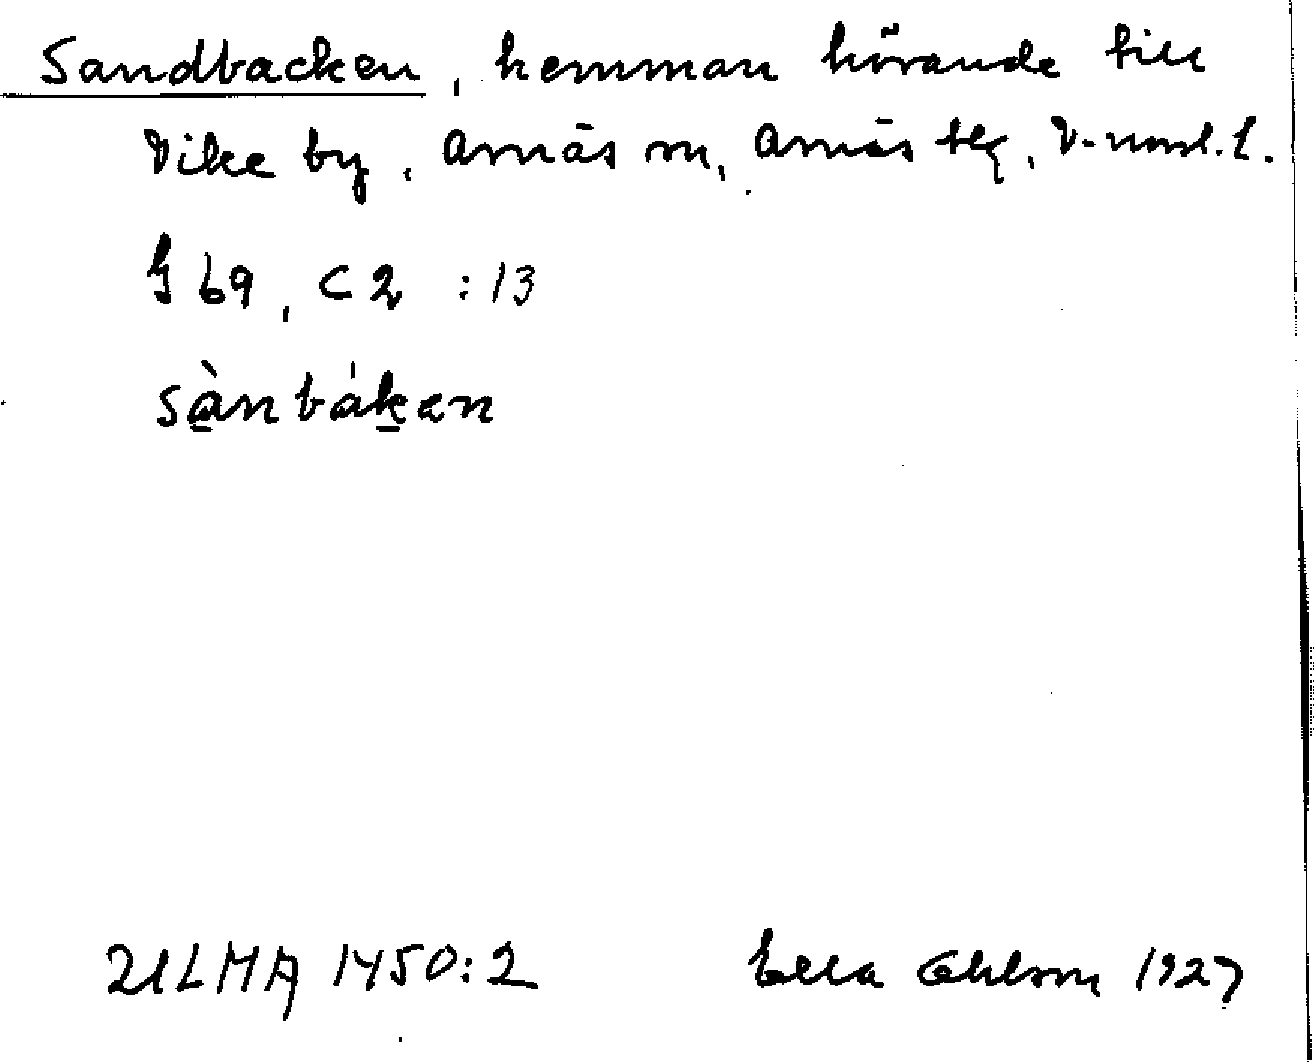 Sandbacken, hemman hörande till
Vike by, Arnäs sn, Arnäs tlg, V-norrl. l.
§ 69, C2 :13
sànbáken
ULMA 1450:2 Ella Ohlson 1927